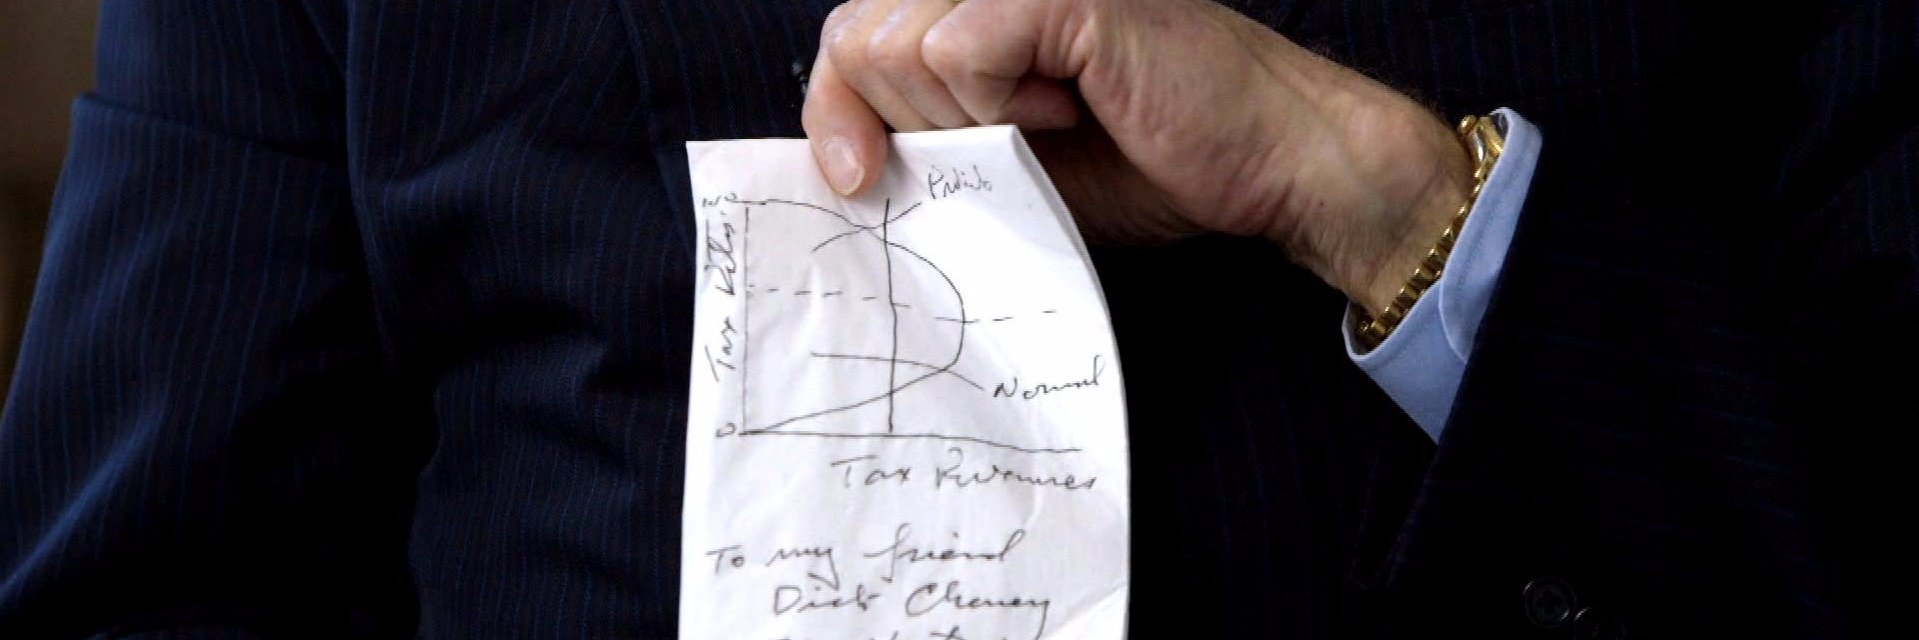 Tax Rates
0
Normal
Tax Revenues
To my friend
Dick Cheney